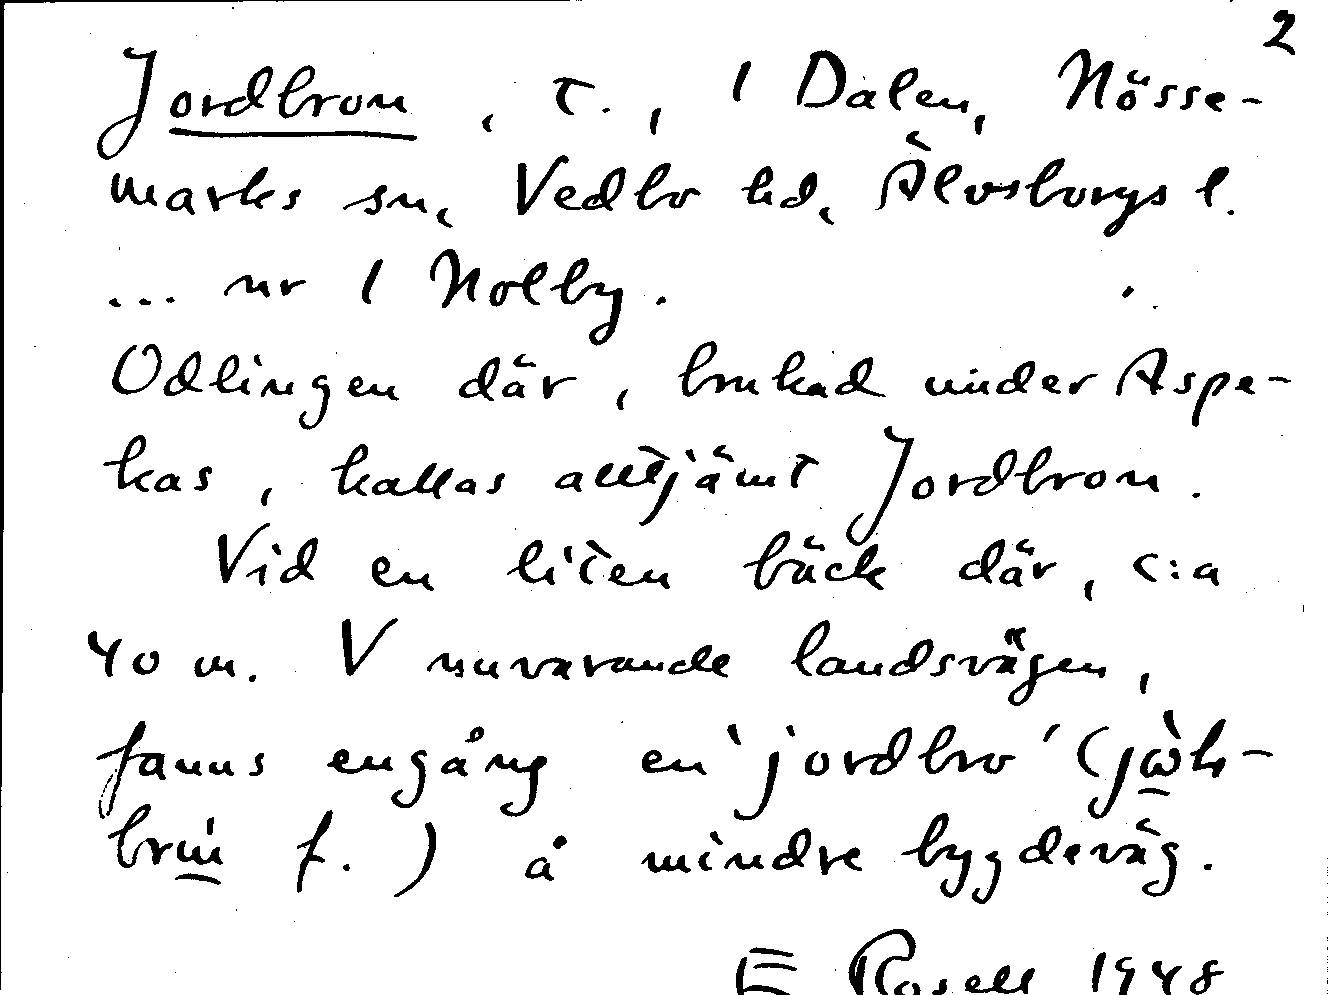 2
Jordbron, t., 1 Dalen, Nösse-
marks sn, Vedbo hd, Älvsborgs l.
... nr 1 Nolby.
Odlingen där, brukad under Aspe-
kas, kallas alltjämt Jordbron.
Vid en liten bäck där, c:a
40 m. V nuvarande landsvägen,
fanns engång en 'jordbro' (
f.) å mindre bygdeväg.
E Rosell 1948